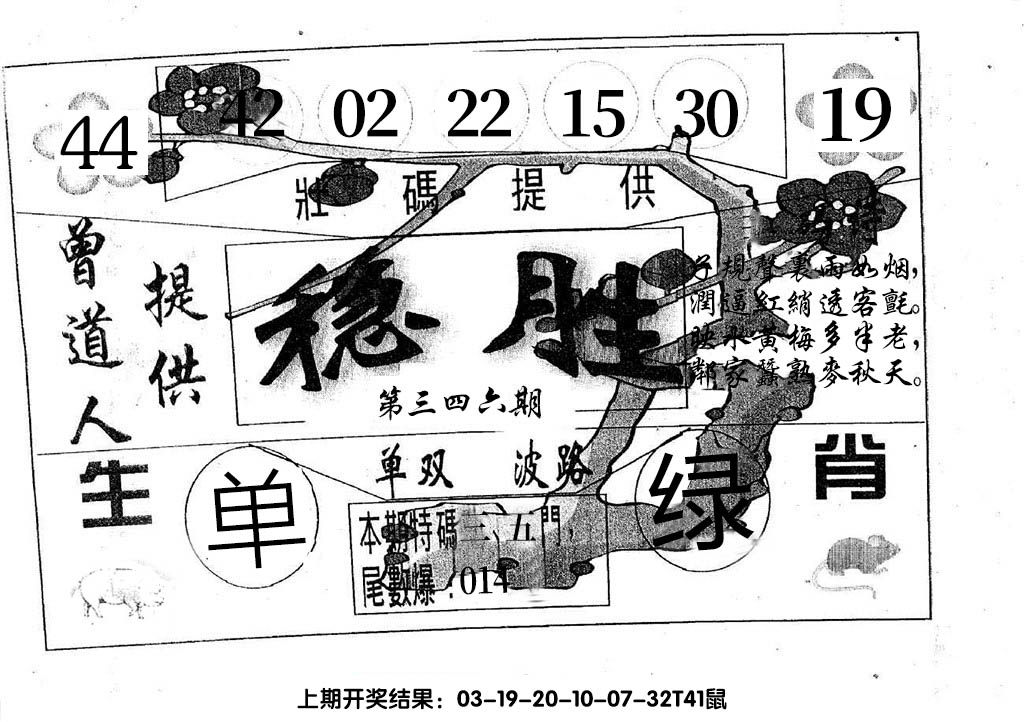 44 42 02 22 15 30 19
壯碼提供
曾道人
提供
特
稳胜
第三四六期
子規聲裏雨如烟，
潤逼紅綃透客氈。
映水黃梅多半老，
鄰家蠶熟麥秋天。
生肖
单双 波路
单 绿
本期特碼三、五門，
尾數爆：014
上期开奖结果：03-19-20-10-07-32T41鼠